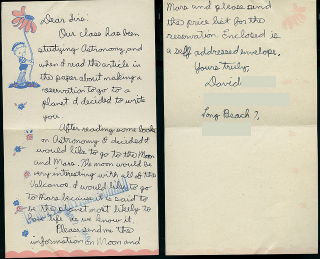 Dear Sirs:
Our class has been
studying Astronomy, and
when I read the article in
the paper about making a
reservation to go to a
planet I decided to write
you.
After reading some books
on Astronomy I decided I
would like to go to the Moon
and Mars. The moon would be
very interesting with all of the
Volcanos. I would like to go
to Mars because it is said to
be the planet most likely to
have life as we know it.
Please send me the
information on Moon and
Mars and please send
the price list for the
reservation Enclosed is
a self addressed envelope.
Yours truly,
David
Long Beach 7,